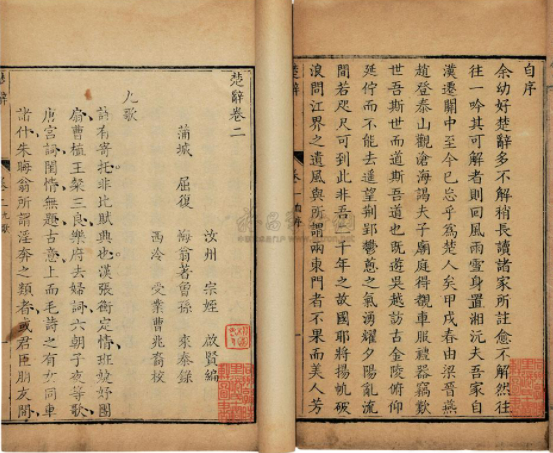 自序
余幼好楚辭多不解稍長讀諸家所註愈不解然往
往一吟其可解者則回風雨雪身置湘沅夫吾家自
漢遷關中至今已忘乎為楚人矣甲戌春由梁晉燕
趙登泰山觀滄海謁夫子廟庭得觀車服禮器竊歎
世吾斯世而道斯吾道也既遊吳越訪古金陵俯仰
延佇而不能去遙望荊郢鬱蔥之氣湧耀夕陽亂流
間若咫尺可到此非吾二千年之故國耶將揚帆破
浪問江界之遺風與所謂兩東門者不果而美人芳
楚辭卷二
汝州 宗姪 啟賢編
蒲城 屈復 悔翁著曾孫 來泰錄
西泠 受業曹兆裔校
九歌
詩有寄托非比賦典也漢張衡定情班婕妤團
扇曹植王粲三良樂府去婦詞六朝子夜等歌
唐宮詞閨情無題古意上而毛詩之有女同車
諸什朱晦翁所謂淫奔之類者或君臣朋友間